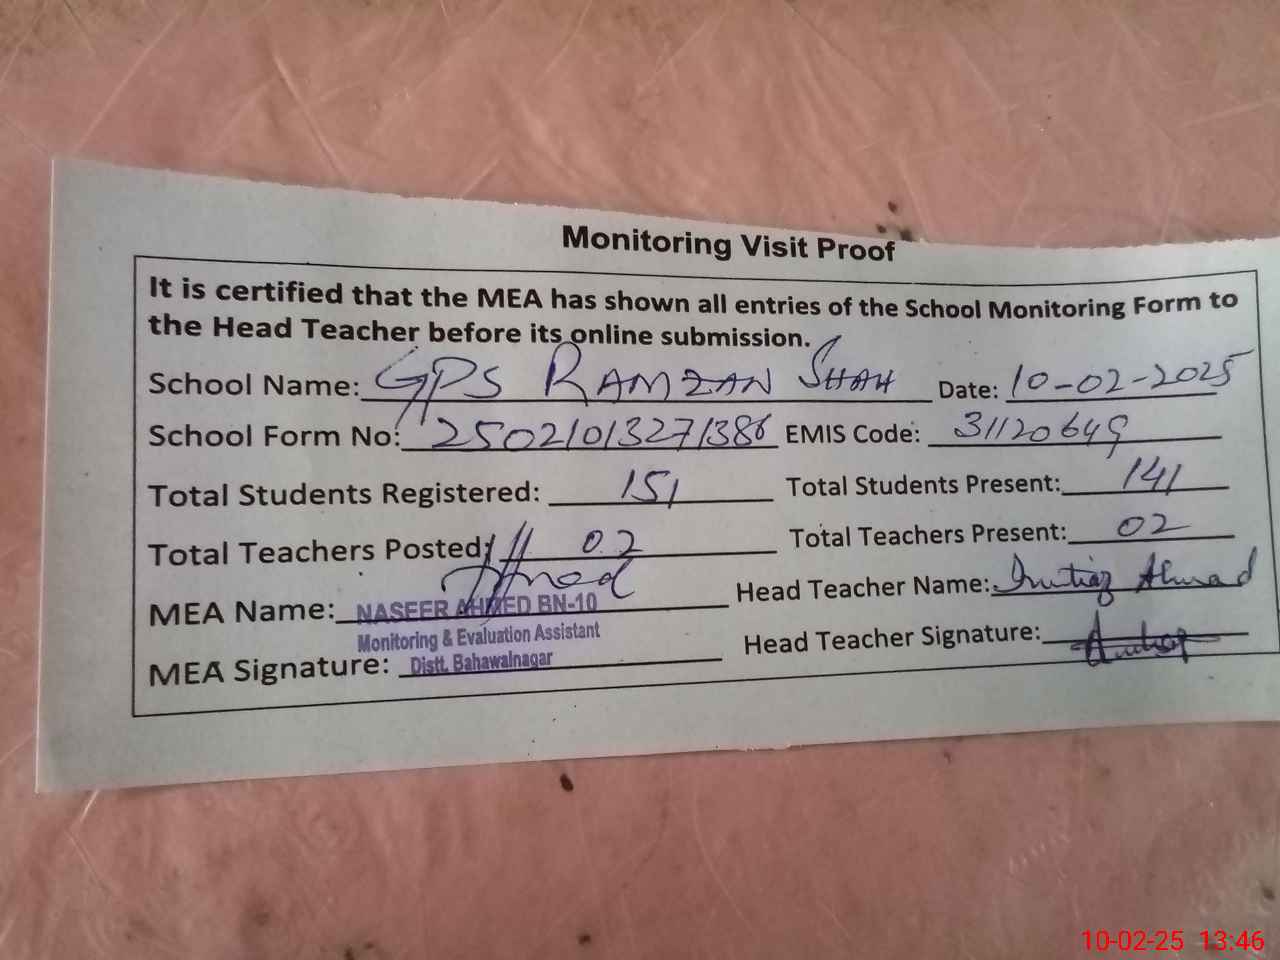 Monitoring Visit Proof
It is certified that the MEA has shown all entries of the School Monitoring Form to
the Head Teacher before its online submission.
School Name: GPS RAMZAN SHAH Date: 10-02-2025
School Form No: 25021013271386 EMIS Code: 31120649
Total Students Registered: 151 Total Students Present: 141
Total Teachers Posted: 02 Total Teachers Present: 02
MEA Name: NASEER AHMED BN-10 Head Teacher Name: Imtiaz Ahmad
Monitoring & Evaluation Assistant
MEA Signature: Distt. Bahawalnagar Head Teacher Signature:
10-02-25 13:46